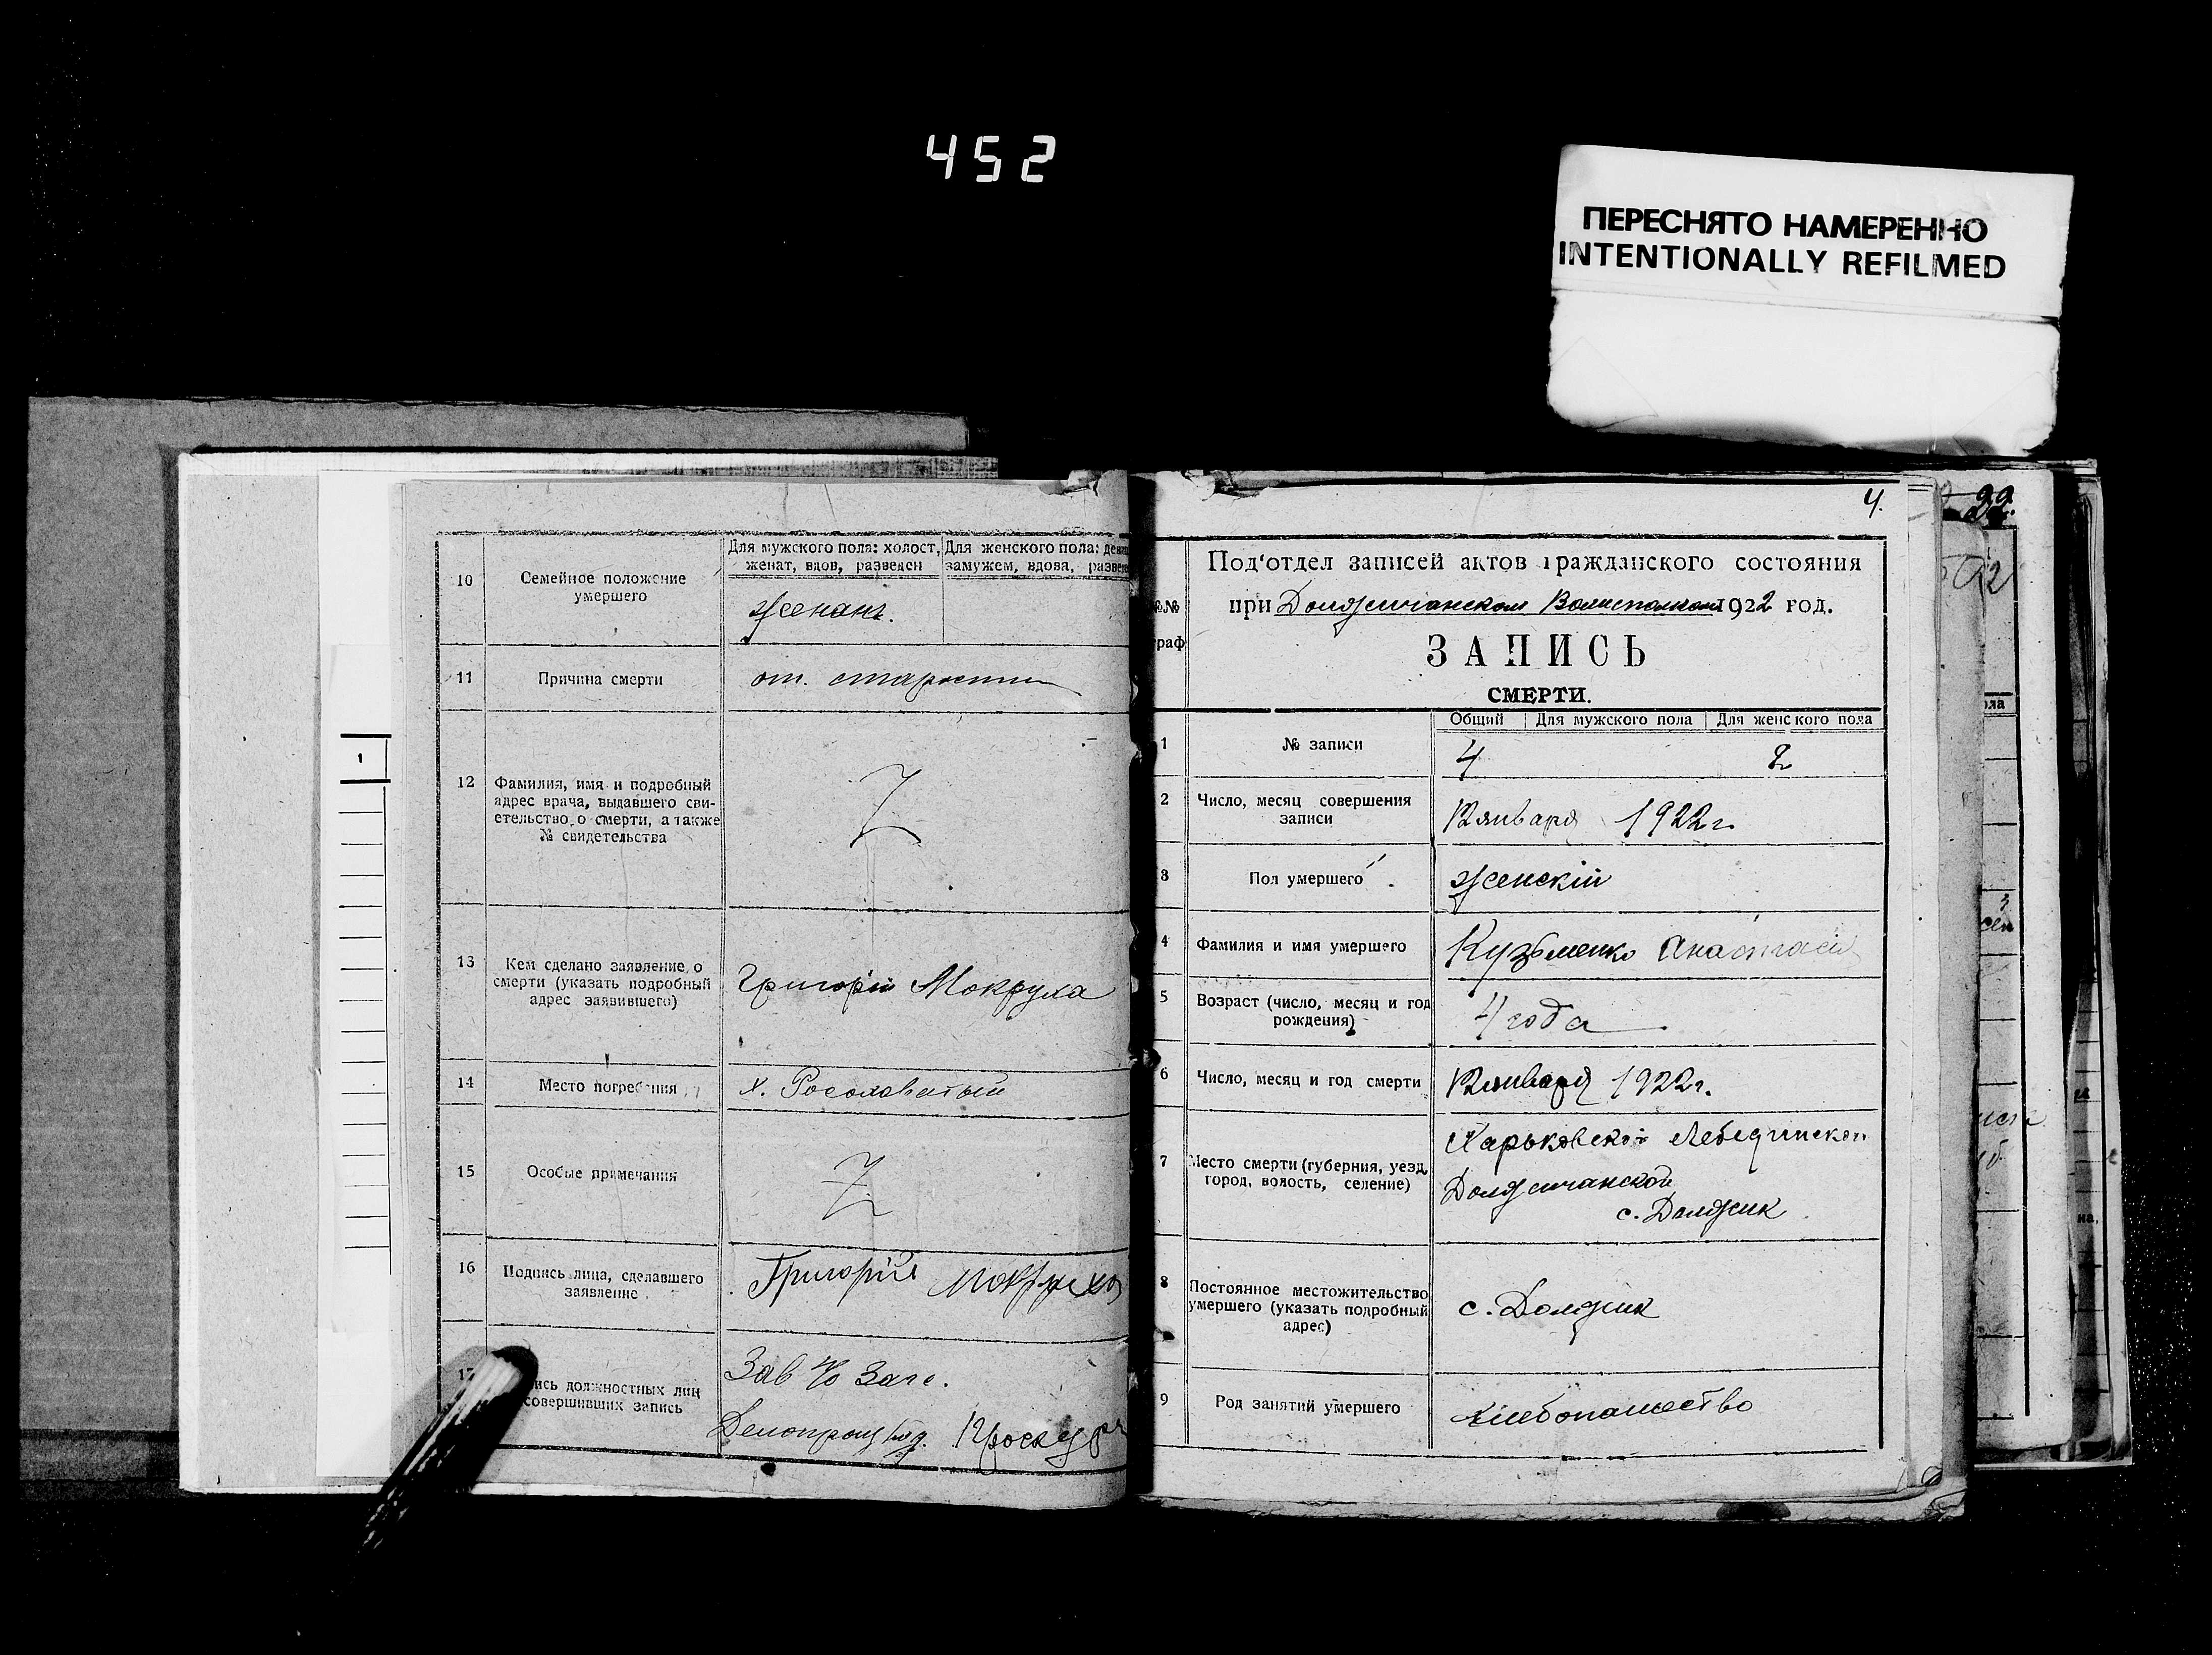 452
ПЕРЕСНЯТО НАМЕРЕННО
INTENTIONALLY REFILMED
1
10
Семейное положение
умершего
Для мужского пола: холост,
женат, вдов, разведен
Для женского пола: деви
замужем, вдова, разве
женатъ.
11
Причина смерти
от. старости
12
Фамилия, имя и подробный
адрес врача, выдавшего сви-
етельство о смерти, а также
№ свидетельства
13
Кем сделано заявление о
смерти (указать подробный
адрес заявившего)
Григорій Мокруха
14
Место погребения
х. Росоховатый
15
Особые примечания
16
Подпись лица, сделавшего
заявление
Григорій Мокруха
17
ись должностных лиц
совершивших запись
Зав п/о Загс.
Делопроизвод. Проскур
4.
№№
граф
Под'отдел записей актов гражданского состояния
при Должичанском Волисполкоме 1922 год.
ЗАПИСЬ
СМЕРТИ.
Общий
Для мужского пола
Для женского пола
1
№ записи
4
2
2
Число, месяц совершения
записи
12 января 1922 г.
3
Пол умершего
женскій
4
Фамилия и имя умершего
Кузьменко Анастасія
5
Возраст (число, месяц и год
рождения)
4 года
6
Число, месяц и год смерти
12 января 1922 г.
7
Место смерти (губерния, уезд,
город, волость, селение)
Харьковской Лебединской
Должичанской
с. Должик
8
Постоянное местожительство
умершего (указать подробный
адрес)
с. Должик
9
Род занятий умершего
хлебопашество
22.